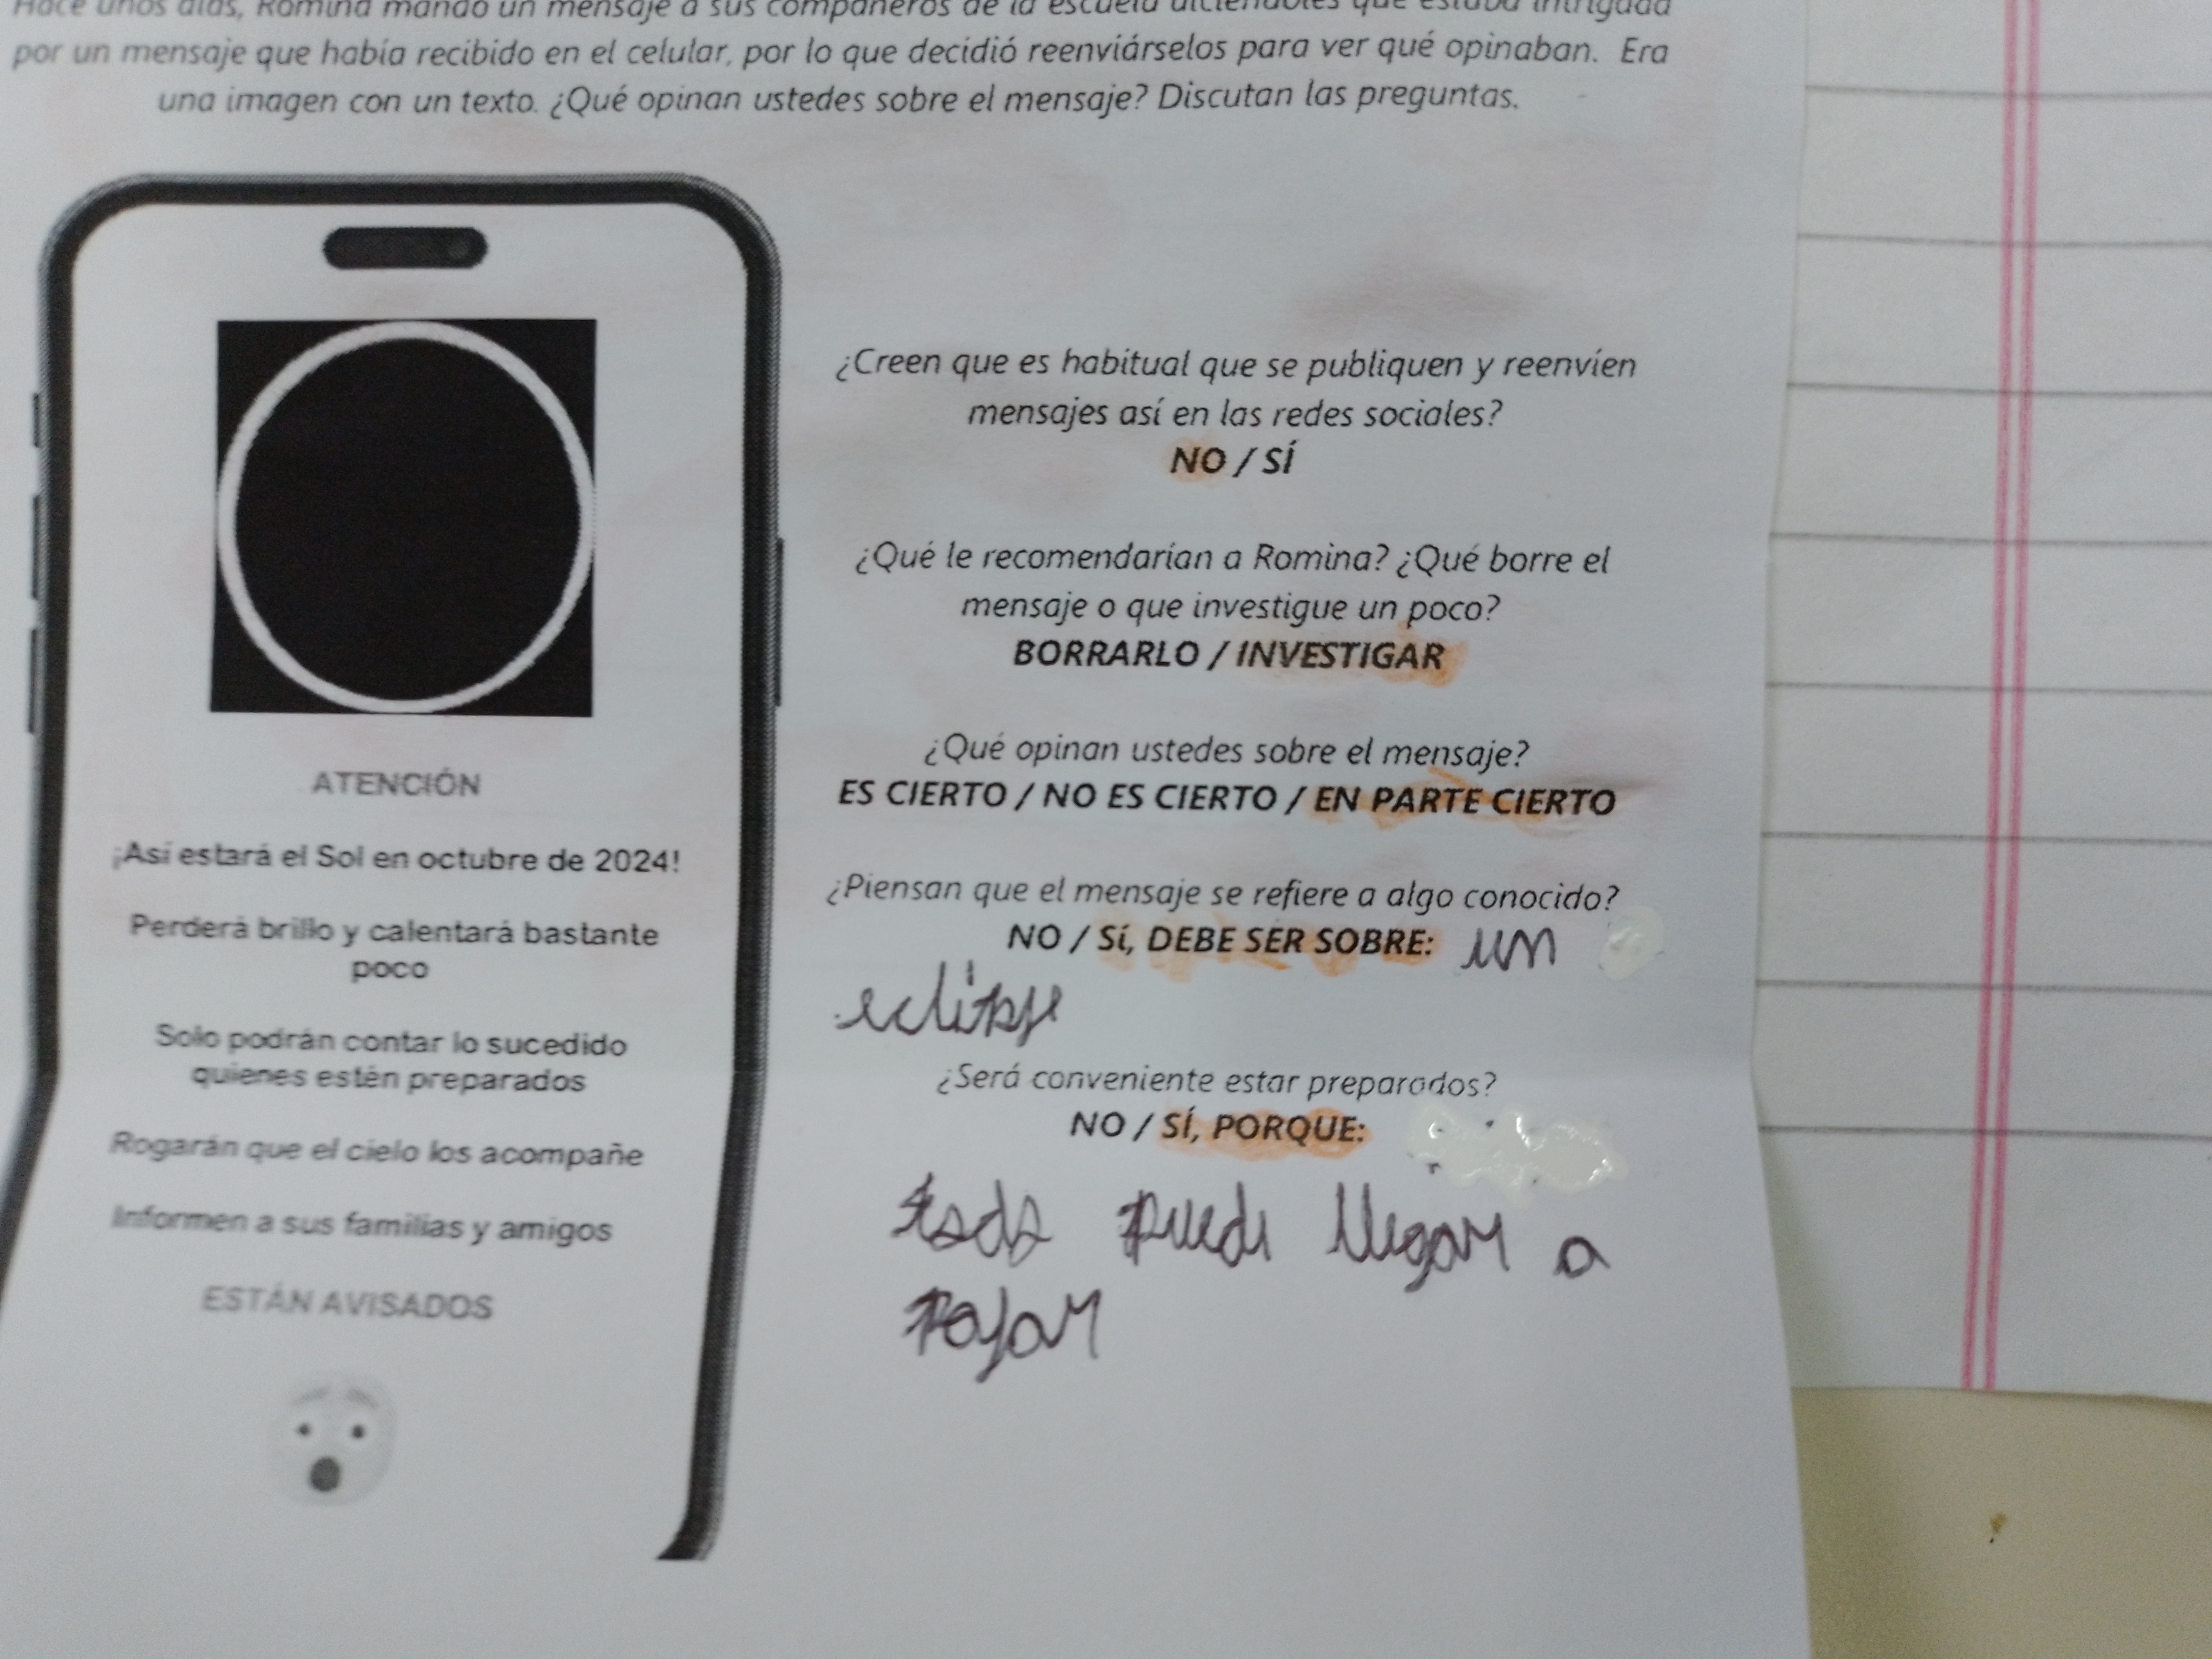 Hace unos días, Romina mandó un mensaje a sus compañeros de la escuela diciéndoles que estaba intrigada
por un mensaje que había recibido en el celular, por lo que decidió reenviárselos para ver qué opinaban. Era
una imagen con un texto. ¿Qué opinan ustedes sobre el mensaje? Discutan las preguntas.
ATENCIÓN
¡Así estará el Sol en octubre de 2024!
Perderá brillo y calentará bastante
poco
Solo podrán contar lo sucedido
quienes estén preparados
Rogarán que el cielo los acompañe
Informen a sus familias y amigos
ESTÁN AVISADOS
¿Creen que es habitual que se publiquen y reenvíen
mensajes así en las redes sociales?
NO / SÍ
¿Qué le recomendarían a Romina? ¿Qué borre el
mensaje o que investigue un poco?
BORRARLO / INVESTIGAR
¿Qué opinan ustedes sobre el mensaje?
ES CIERTO / NO ES CIERTO / EN PARTE CIERTO
¿Piensan que el mensaje se refiere a algo conocido?
NO / Sí, DEBE SER SOBRE: un
eclipse
¿Será conveniente estar preparados?
NO / SÍ, PORQUE:
todo puede llegar a
pasar